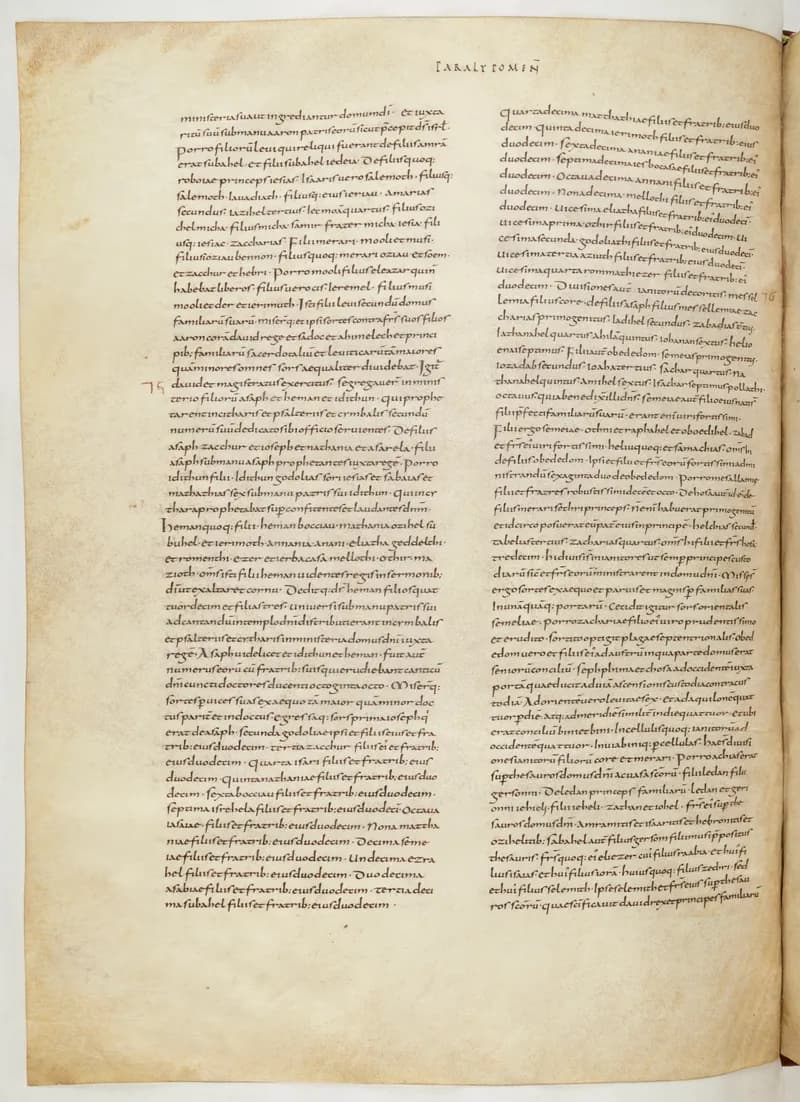 PARALYPOMEÑ
ministeria sua ut ingrediantur domum dñi · et iuxta
ritū suū sub manu aaron patris eorū sicut p̄cepit dñs isrl̄ ·
Porro filiorū leui qui reliqui fuerant de filiis amrā
erat subahel · et filii subahel iedeia · De filiis quoq:
roboiae princeps iesias · Isaaris uero salemoth · filiusq:
salemoth · iauadiath · filiusq: eius ieriau · Amarias
secundus · iazihel tertius · iecmaā quartus · filius ozi
chel micha · filius micha samir · frater micha iesia · filii
usq: iesiae · zaccharias · Filii merari · mooli et musi ·
filius ioziau bennon · filius quoq: merari oziau et soem ·
et zacchur et hebri · Porro mooli filius eleazar qui ñ
habebat liberos · filius uero cis · ieremel · filii musi
mooli eder et ierimuth · Isti filii leui secundū domus
familiarū suarū · miserq: et ipsi sortes contra frs̄ suos filios
aaron corā dauid rege et sadoc et ahimelech et princi
pib: familiarū sacerdotaliū et leuiticarū tā maiores
quā minores omnes sors aequaliter diuidebat · Igit̄
75
dauid et magistratus exercitus · segregauer̄ in minis
terio filiorū asaph et heman et idithun · qui prophe
tarent in citharis et psalteriis et cymbalis secundū
numerū suū dedicato sibi officio seruientes · De filiis
asaph zacchur et ioseph et nathania et asarela · filii
asaph sub manu asaph prophetantes iuxta regē · Porro
idithun filii · Idithun godolias sori iesias et sabaias et
mathathias sex sub manu patris sui idithun · qui in cy
thara prophetabat sup confitentes et laudantes dnm̄ ·
Heman quoq: filii · heman bocciau · mathania ozihel su
buhel · et ierimoth · annania · anani · eliatha geddelthi ·
et romenthi · ezer et ierbacasa mellothi · othir · ma
zioth · om̄s isti filii heman uidentes regis in sermonib:
dī ut exaltaret cornu · Deditq: ds̄ heman filios quat
tuordecim et filias tres · Uniuersi sub manu patris sui
ad cantandū in templo dñi distributi erant in cymbalis
et psalteriis et cytharis in ministeria domus dñi iuxta
regē · Asaph uidelicet et idithun et heman · fuit aut̄
numerus eorū cū fratrib: suis qui erudiebant canticū
dñi cuncti doctores ducenti octoginta octo · Miserq:
sortes p uices suas ex aequo tā maior quā minor doc
tus parit̄ et indoctus · Egressaq: sors prima ioseph q̇
erat de asaph · secunda godoliae ipsi et filiis eius et fra
trib: eius duodecim · tertia zacchur filiis ei᾿ et fratrib:
eius duodecim · quarta isari filiis et fratrib: eius
duodecim · Quinta nathaniae filiis et fratrib: eius duo
decim · sexta bocciau filiis et fratrib: eius duodecim ·
septima isrehela filiis et fratrib: eius duodeci · Octaua
iasaiae · filiis et fratrib: eius duodecim · Nona matha
niae filiis et fratrib: eius duodecim · Decima seme
iae filiis et fratrib: eius duodecim · Undecima ezra
hel filiis et fratrib: eius duodecim · Duodecima
asabiae filiis et fratrib: eius duodecim · tertia deci
ma subahel filiis et fratrib: eius duodecim ·
Quarta decima mathathiae filiis et fratrib: eius duo
decim · Quinta decima ierimoth filiis et fratrib: eius
duodecim · sexta decima ananiae filiis et fratrib: ei᾿
duodecim · septima decima iesbocasae filiis et fratrib: ei᾿
duodecim · Octaua decima annani filiis et fratrib: ei᾿
duodecim · Nona decima mellothi filiis et fratrib: ei᾿
duodecim · Uicesima eliatha filiis et fratrib: ei᾿ duodeci ·
Uicesima prima othir filiis et fratrib: ei᾿ duodecim · Ui
cesima secunda godoliathi filiis et fratrib: eius duodeci ·
Uicesima tertia aziuth filiis et fratrib: eius duodeci ·
Uicesima quarta rommathiezer filiis et fratrib: ei᾿
duodecim · Diuisiones aut̄ ianitorū de coritis · mesel
76
lemia filius core · de filiis asaph filius mesellemiae zac
charias primogenitus · iadihel secundus · zabadias
iathanahel quartus · ahilā quintus · iohanan sextus · helio
enai septimus · Filii aut̄ obededom · semeias primogenitus ·
iozadab secundus · ioaha tertius · sachar quartus · na
thanahel quintus · amihel sextus · isachar septimus · pollathi
octauus · quia benedixit illi dn̄s · semeiae aut̄ filio eius nati s̄
filii p̄fecti familiarū suarū · erant enī uiri fortissimi ·
Filii ergo semeiae · othni et raphahel et oboedihel · zabad
et frs̄ ei᾿ uiri fortissimi · heliu quoq: et samachias · om̄s hi
de filiis obededom · Ipsi et filii et frs̄ eorū fortissimi ad mi
nistrandū sexaginta duo de obededom · Porro mesellamiae
filii et fratres robustissimi decē et octo · De hosa aut̄ id ē de
filiis merari · sethri princeps · Ñ enī habuerat primogenitū
et idcirco posuerat eū pat̄ eius in principē · helchias secund᾿
tabelias tertius · zacharias quartus · om̄s hi filii et frs̄ hosa
tredecim · hi diuisi s̄ in ianitores ut semp principes custo
diarū sic̄ et frs̄ eorū ministrarent in domu dñi · Misse s̄
ergo sortes ex aequo et paruis et magnis p familias suas
In unāquāq: portarū · Cecidit igitur sors orientalis
semeliae · porro zachariae filio eius uiro prudentissimo
et erudito · sortito optigit plaga septemtrionalis · obed
edom uero et filiis eius ad austrū in qua parte domus erat
seniorū conciliū · sephphima et hosa ad occidentē iuxta
portā quae ducit ad uiā ascensionis custodia contra cus
todiā · Ad orientē uero leuitae sex · et ad aquilonē quat
tuor p diē · atq: ad meridiē similit̄ in die quattuor · et ubi
erat conciliū bini et bini · In cellulis quoq: ianitorū ad
occidentē quattuor · In uia binīq: p cellulas · hae s̄ diuisi
ones ianitorū filiorū core et merari · Porro achias erat
sup thesauros domus dñi ac uasa scōrū · filii ledan filii
gersonni · De ledan princeps familiarū · ledan et gers
onni iehieli · filii iehieli · zathan et iohel · frs̄ ei᾿ sup the
sauros domus dñi · Amramitis et isaaritis et hebronitis et
ozihelitib: · subahel aut̄ filius gersom filii musi p̄positus
thesauris · frs̄ quoq: ei᾿ eliezer cui filius raabia · et hui᾿ fi
lius isaias · et hui᾿ filius iora · huius quoq: filius zechri · sed
et hui᾿ filius selemith · Ipse selemith et frs̄ eius sup thesau
ros scōrū · quae scīficauit dauid rex et principes familiarū